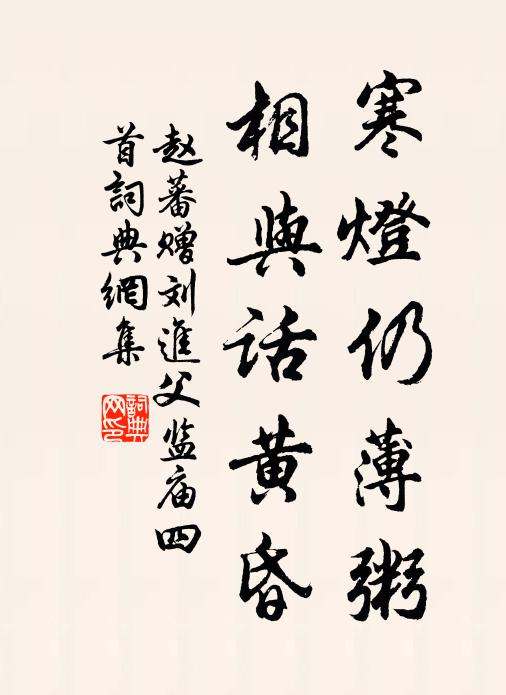 寒燈仍薄粥
相與话黄昏
赵蕃赠刘進父监庙四
首詞典網集
詞典网印